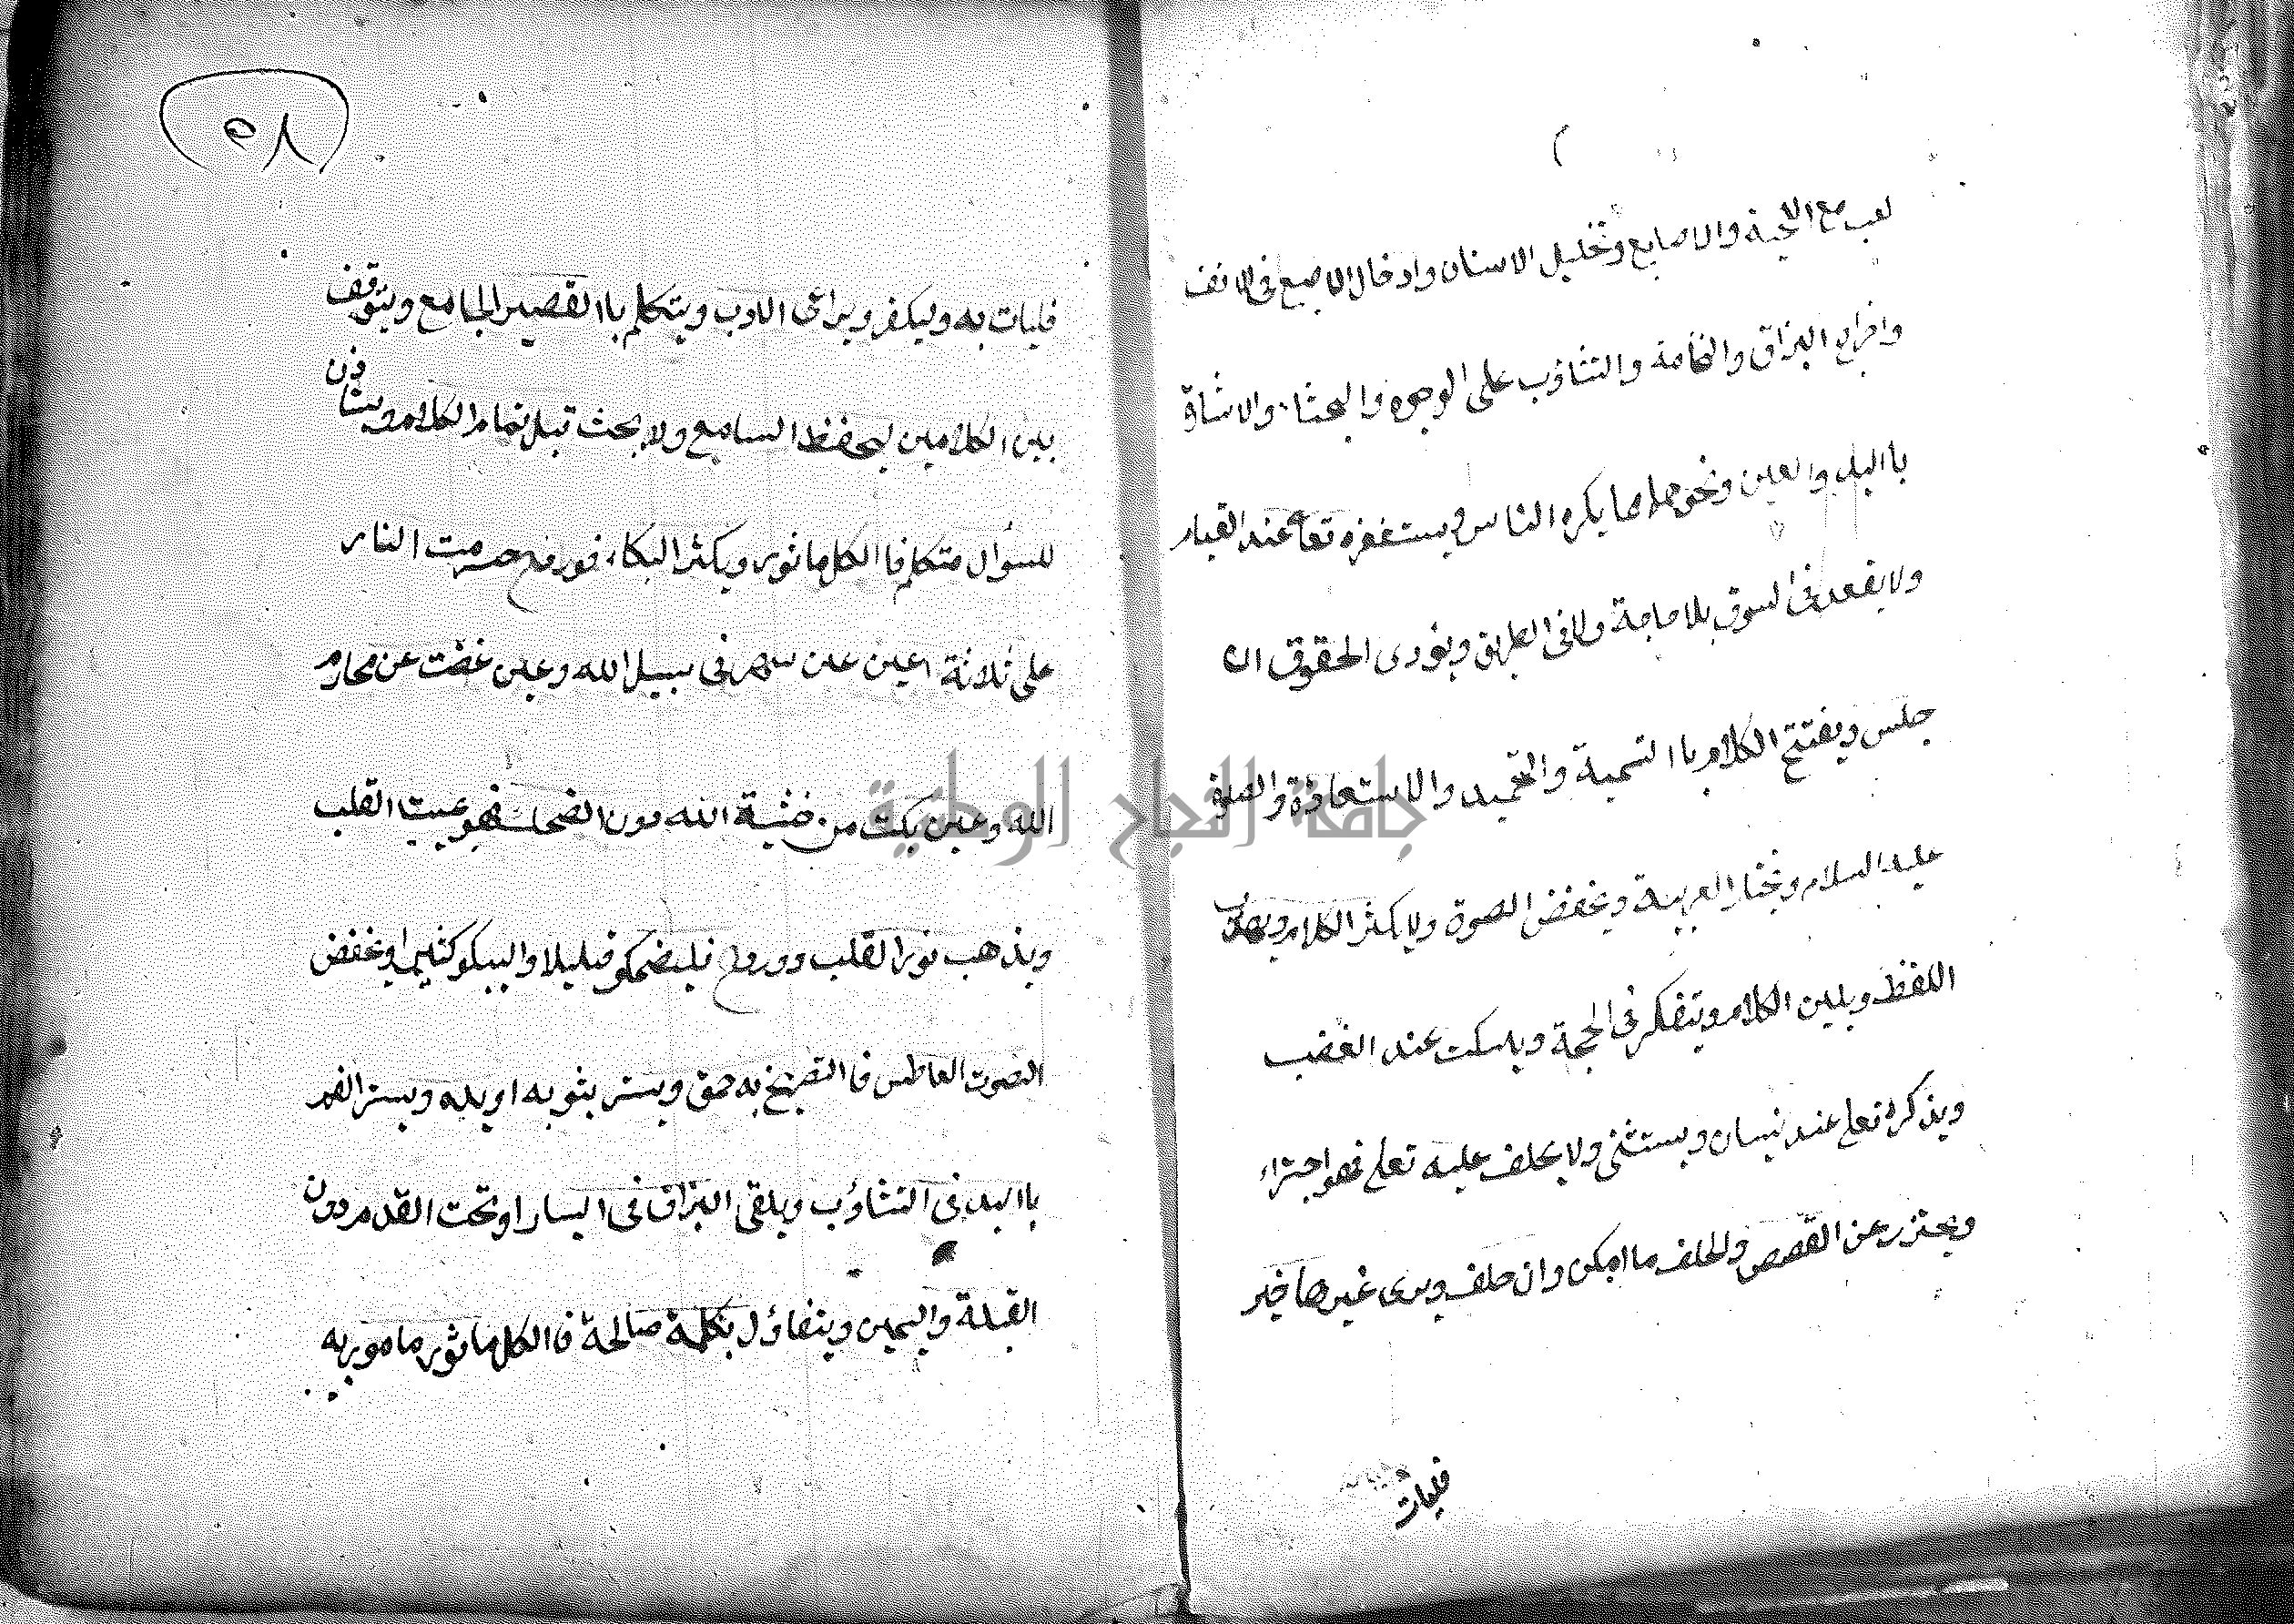 لعب مع الاحية والاصابع وتخليل الاسنان وادخال الاصبع فى الانف
واخراج البزاق والنخامة والتثاؤب على الوجوه والبحثا والاشاة
باليد والعين ونحوهما مما يكره الناس ويستغفره تعا عند القيار
ولا يقعد فى السوق بلا حاجة ولا فى الطريق ويؤدى الحقوق ان
جلس ويفتتح الكلام باالتسمية والتحميد والاستعاذة والصلوة
عليه السلام ويختار العربية ويخفض الصوة ولا يكثر الكلام ويهذب
اللفظ ويلين الكلام ويتفكر فى الحجة ويسكت عند الغضب
ويذكره تعلى عند نيسان ويستثنى ولا يحلف عليه تعلى فهو اجتراء
ويحتزر عن القصص والحلف ما امكن وان حلف ويرى غيرها خير
فليات
٥٨
فليات به وليكفر ويراعى الادب ويتكلم باالقصير الجامع ويتوقف
بين الكلامين ليحفظ السامع ولا يبحث قبل تمام الكلام ويستاذن
للسؤال متكلم فاالكل ماثور ويكثر البكاء فورد حرمت النار
على ثلاثة اعين عين سهر فى سبيل الله وعين غضت عن محارم
الله وعين بكت من خشية الله دون الضحك فهو يميت القلب
ويذهب نور القلب وورد فليضحكو قليلا والبيكو كثيرا ويخفض
الصوت العاطس فاالتصريخ به حمق ويستر بثوبه او يده ويستر الفم
باليد فى التثاؤب ويلقى البزاق فى اليسار او تحت القدم دون
القبلة واليمين ويتفاؤل بكلمة صالحة فاالكل ماثور مامور به
جامعة النجاح الوطنية